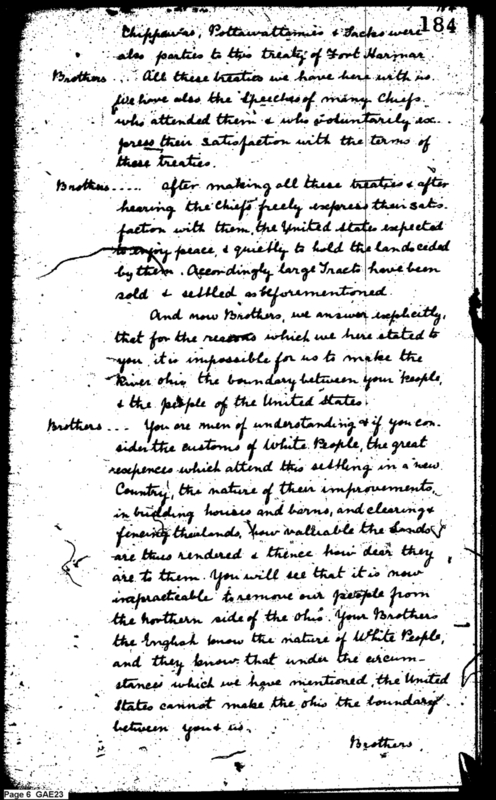 184
Chippawas, Pottawattamies & Sacks were
also parties to this treaty of Fort Harmar
Brothers ... All these treaties we have here with us.
We have also the Speeches of many Chiefs
who attended them & who voluntarily ex-
press their satisfaction with the terms of
these treaties.
Brothers .... After making all these treaties & after
hearing the Chiefs freely express their satis-
faction with them, the United States expected
to enjoy peace, & quietly to hold the lands ceded
by them. Accordingly large Tracts have been
sold & settled as beforementioned.
And now Brothers, we answer explicitly,
that for the reasons which we here stated to
you it is impossible for us to make the
River Ohio the boundary between your People,
& the people of the United States.
Brothers ... You are men of understanding & if you con-
sider the customs of White People, the great
expences which attend this settling in a new
Country, the nature of their improvements,
in building houses and barns, and clearing &
fencing the lands, how valuable the Lands
are thus rendered & thence how dear they
are to them. You will see that it is now
impracticable to remove our people from
the Northern side of the Ohio. Your Brothers
the English know the nature of White People,
and they know that under the circum-
stances which we have mentioned, the United
States cannot make the Ohio the boundary
between you & us.
Brothers
Page 6 GAE23